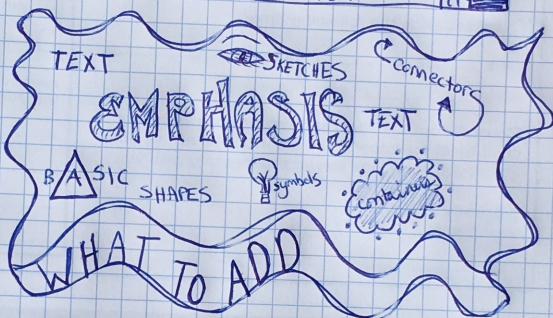 TEXT
SKETCHES
connectors
EMPHASIS
TEXT
BASIC
SHAPES
symbols
containers
WHAT TO ADD